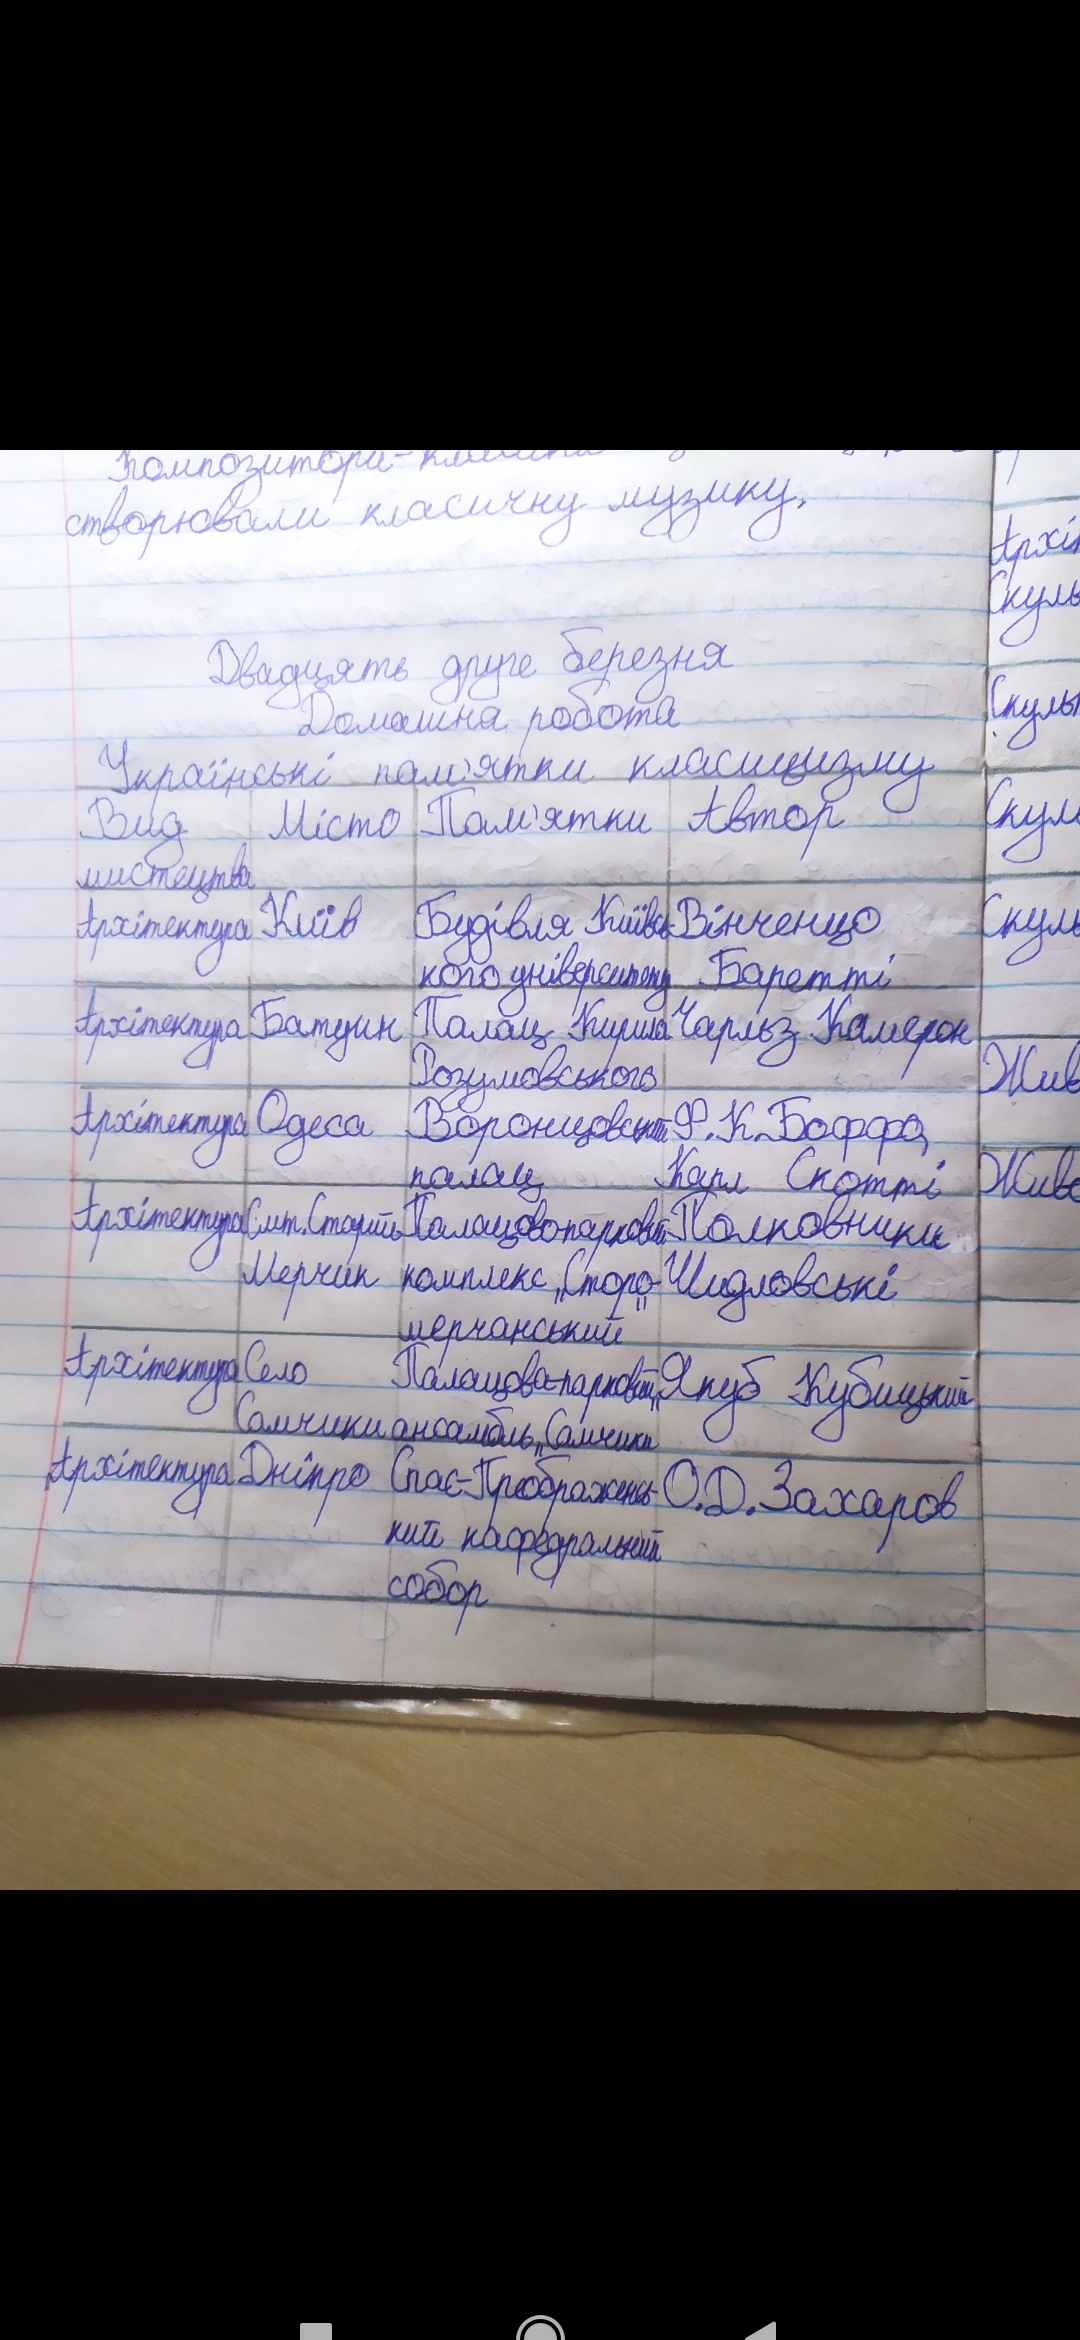 Композитори-
створювали класичну музику.
Двадцять друге березня
Домашня робота
Українські пам'ятки класицизму
Вид Місто Пам'ятки Автор
мистецтва
Архітектура Київ Будівля Київсь- Вінченцо
кого університету Баретті
Архітектура Батурин Палац Кирила Чарльз Камерон
Розумовського
Архітектура Одеса Воронцовський Ф.К.Боффо,
палац Карл Скотті
Архітектура Смт. Старий Палацово-парковий Полковники
Мерчик комплекс „Старо- Шидловські
мерчанський"
Архітектура Село Палацово-парковий Якуб Кубицький
Самчики ансамбль „Самчики"
Архітектура Дніпро Спас-Преображенсь- О.Д.Захаров
кий кафедральний
собор
Архіт
Скуль
Скульп
Скуль
Скуль
Жив
Живо